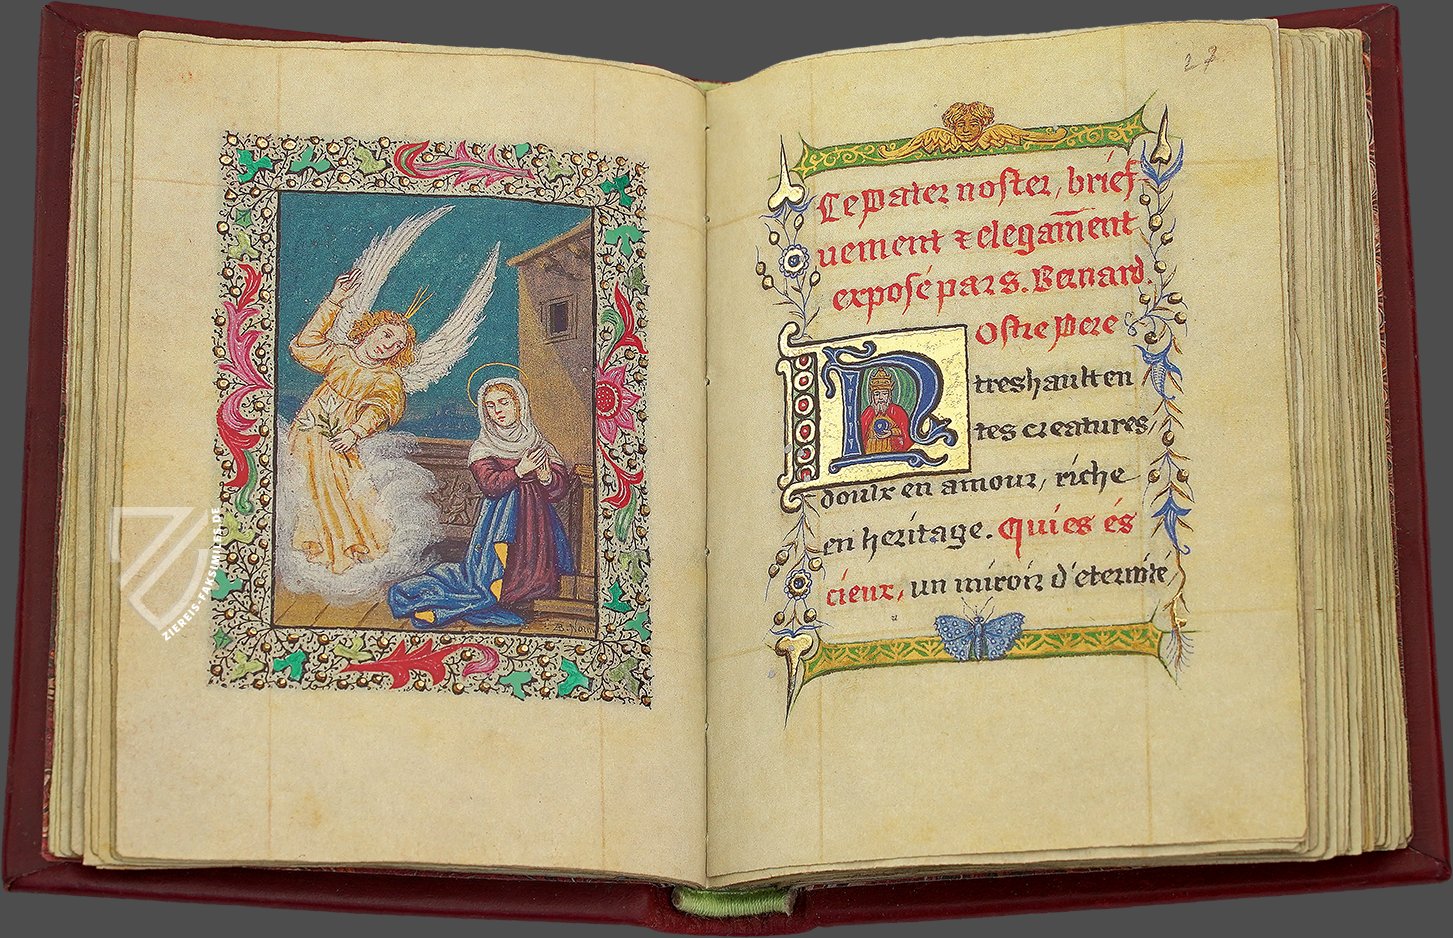 ZIEREIS-FAKSIMILES.DE
AB. Noir
27
Le Pater noster, brief
uement ⁊ elegam̄ent
exposé par S. Bernard.
Nostre Pere
treshault en
tes creatures,
doulx en amour, riche
en heritage. Qui es és
cieux, un miroir d'eternité